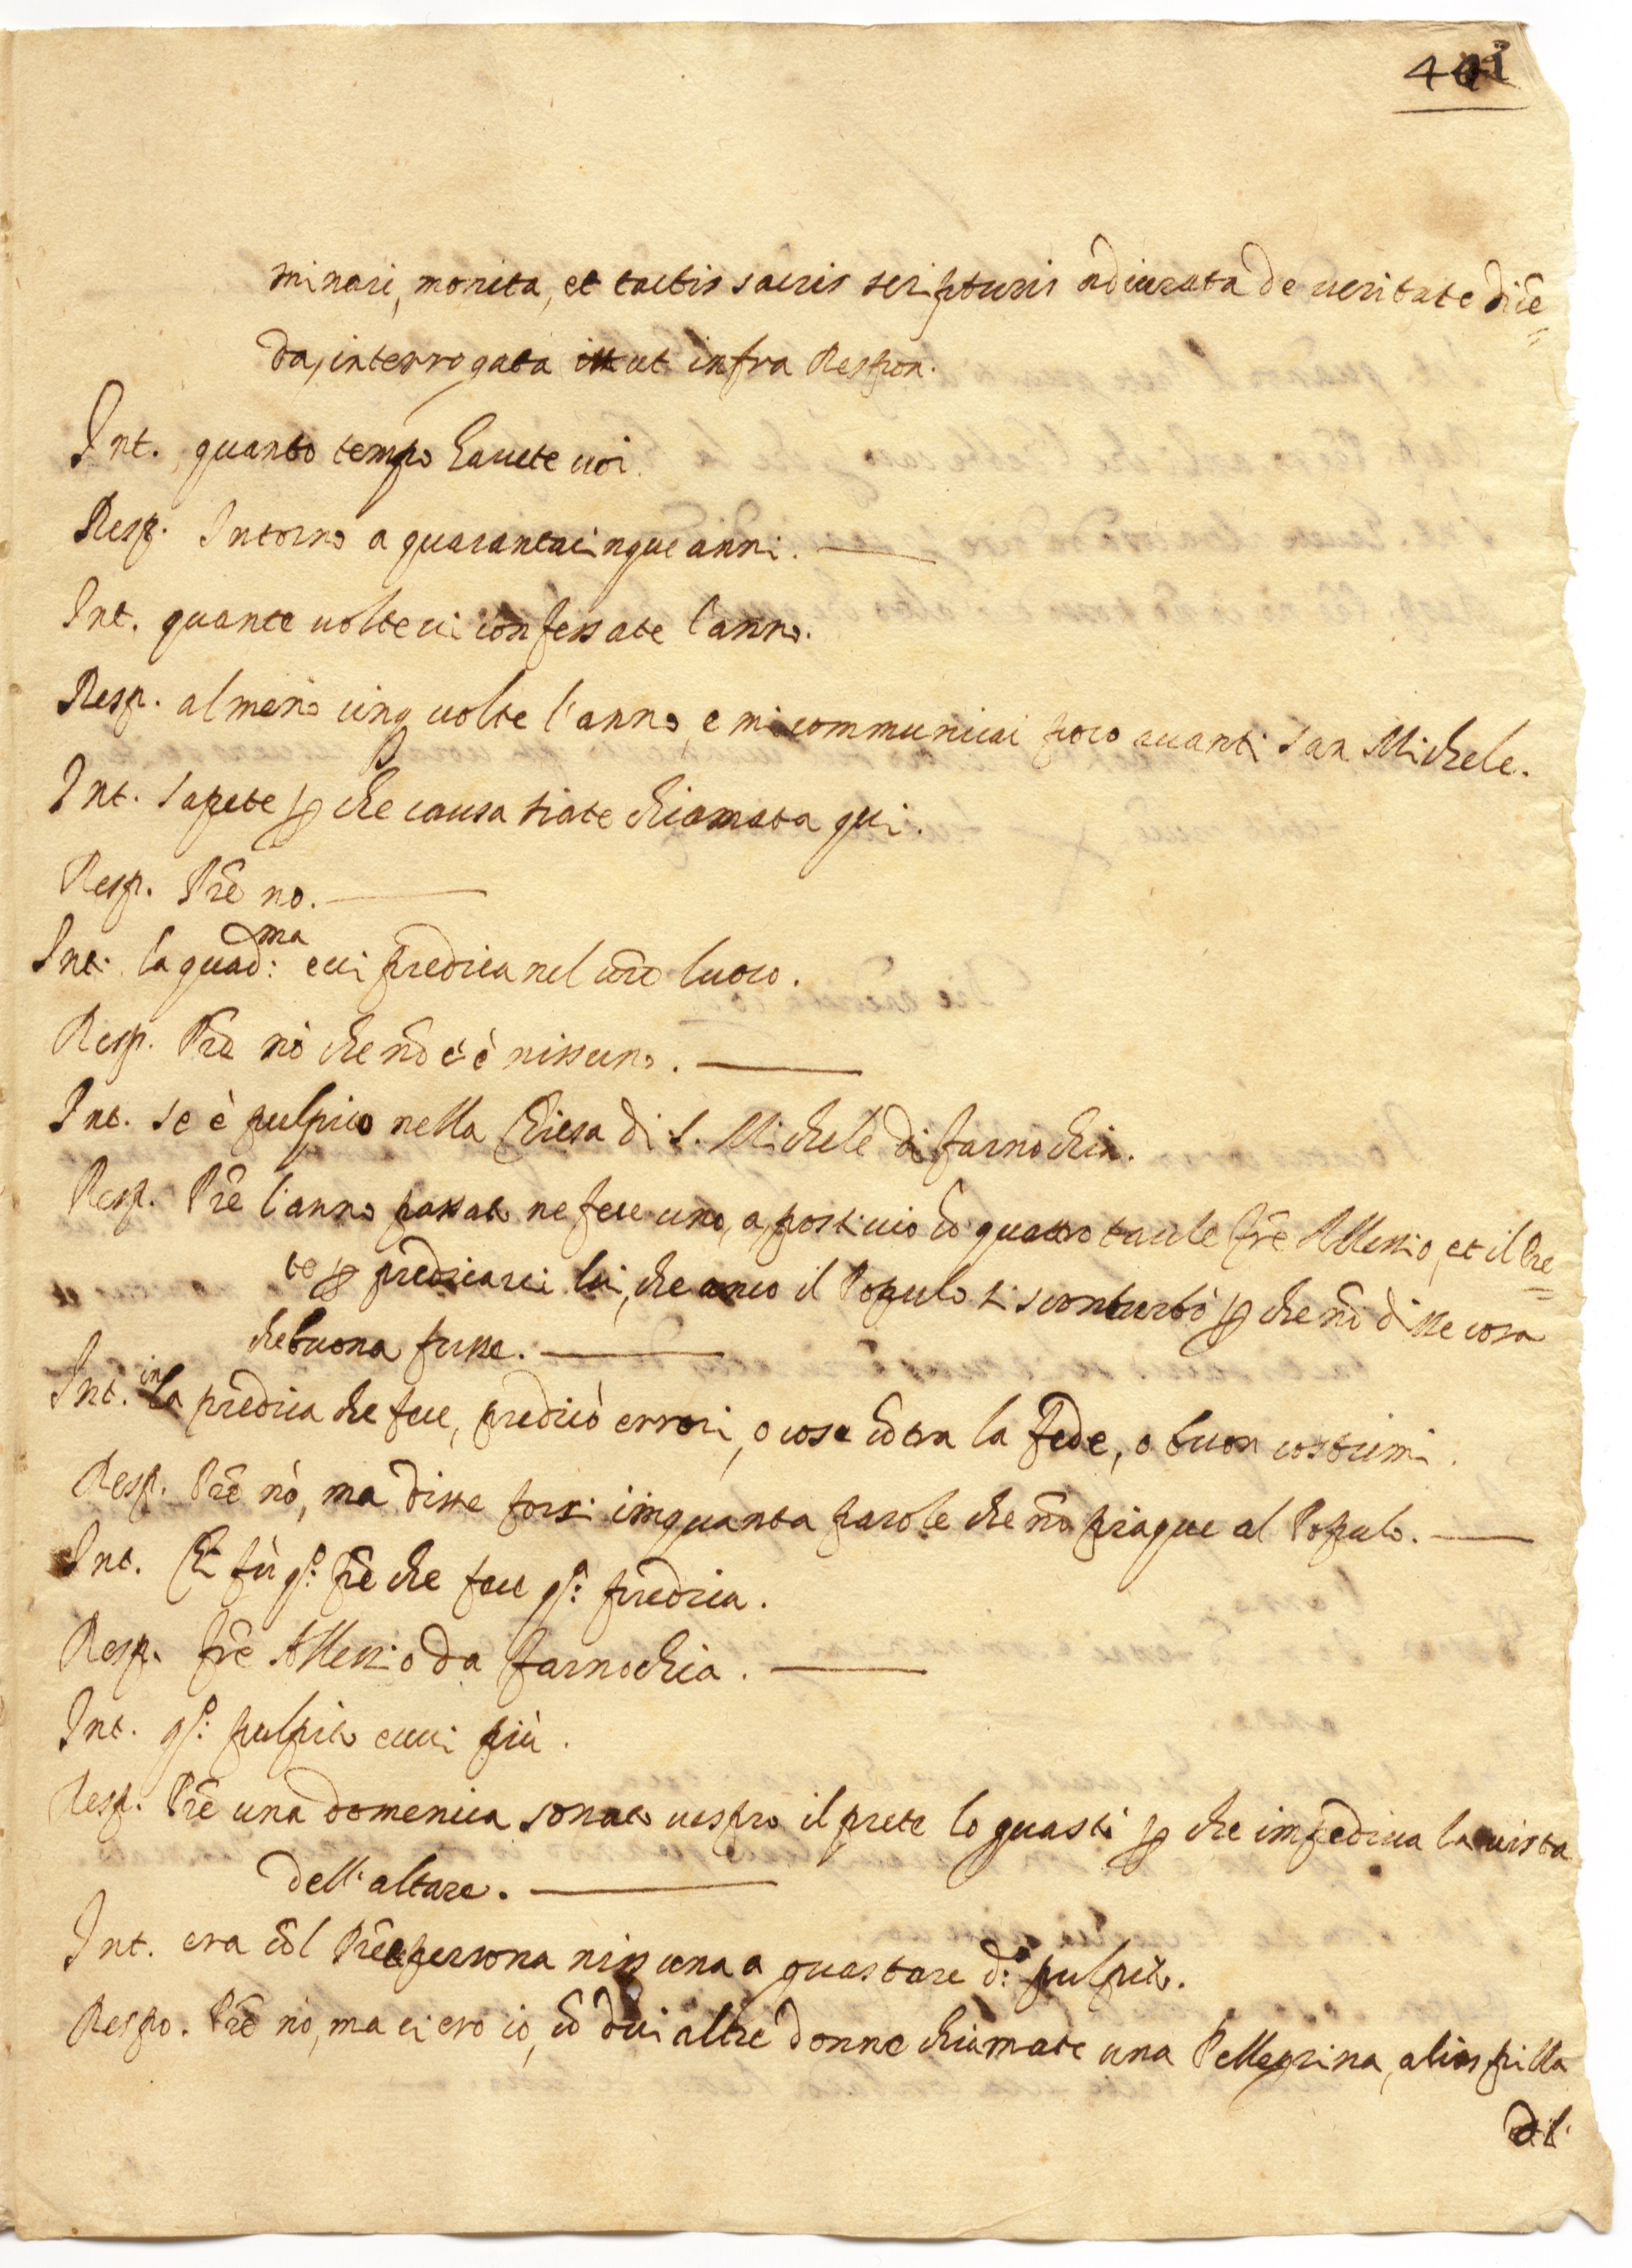 401
minari, monita, et tactis sacris scripturis adiurata de ueritate dicē=
da, interrogata ut infra Respon.
Int. quanto tempo hauete uoi.
Resp. Intorno a quarantacinque anni.
Int. quante uolte ui confessate l'anno.
Resp. almeno cinq uolte l'anno, e mi communicai poco auanti San Michele.
Int. Sapete ꝑ che causa siate chiamata qui.
Resp. Prē no.
Int. la quad:ma eui predica nel urō luoco.
Resp. Prē nò che nō c'è nissuno.
Int. se è pulpito nella Chiesa di S. Michele di farnochia.
Resp. Prē l'anno passato ne fece uno, a posticcio cō quattro tauole frē Allessio, et il Pre=
te ꝑ predicarci lui, che anco il Populo si sconturbò ꝑ che nō disse cosa
che buona fusse.
Int. in la predica che fece, predicò errori, o cose cōtra la fede, o buon costumi.
Resp. Prē nò, ma disse forsi cinquanta parole che nō piaque al Populo.
Int. Chi fù q.º frē che fece q.ª predica.
Resp. frē Allessio da farnochia.
Int. q.º pulpito euui più.
Resp. Prē una domenica sonato uespro il prete lo guastò ꝑ che impediua la uista
dell'altare.
Int. era cōl Prete persona nissuna a guastare d.º pulpito.
Respo. Prē nò, ma ci ero io, cō dui altre donne chiamate una Pellegrina, alias pilla